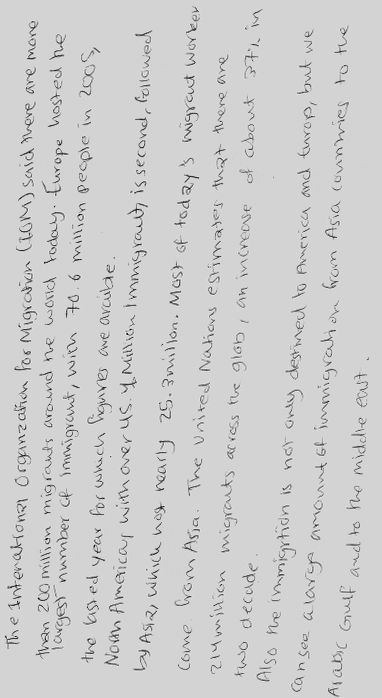 The International Organization for Migration (IOM) said there are more
than 200 million migrants around the world today. Europe hosted the
largest number of immigrant, with 70.6 million people in 2005,
the lasted year for which figures are avaible.
North American, with over 45. Million Immigrant, is second, followed
by Asia, which host nearly 25.3 million. Most of today's migrant worker
come from Asia. The United Nations estimates that there are
214 million migrants across the glob, an increase of about 37% in
two decade.
Also the immigrtion is not only destined to America and Europ, but we
can see a large amount of immigration from Asia countries to the
Arabic Gulf and to the middle east.